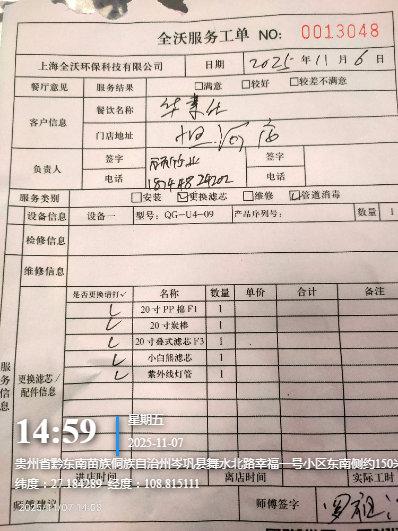 全沃服务工单 NO: 0013048
上海全沃环保科技有限公司 日期 2025年11月6日
餐厅意见 服务结果 □满意 □较好 □较差不满意
客户信息 餐饮名称 华莱士
门店地址
负责人 签字 签字
电话 电话
服务类别 □安装 ☑更换滤芯 □维修 ☑管道消毒
设备信息 设备一 型号: QG-U4-09 产品序列号: 数量 1
检修信息
维修信息
服务信息
更换滤芯/配件信息
是否更换请打✓ 名称 数量 单价 合计 备注
✓ 20寸PP棉F1 1
✓ 20寸炭棒 1
✓ 20寸叠式滤芯F3 1
✓ 小白熊滤芯 1
✓ 紫外线灯管 1
14:59 星期五
2025-11-07
贵州省黔东南苗族侗族自治州岑巩县舞水北路幸福一号小区东南侧约150米
纬度: 27.184289 经度: 108.815111
进店时间 离店时间 实际工时
2025/11/07 14:58
师傅建议 师傅签字